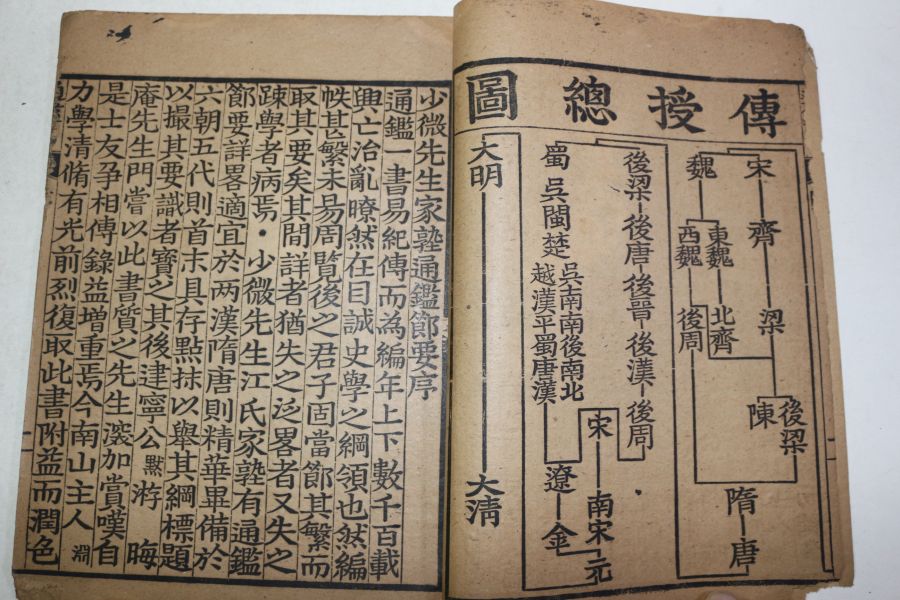 傳授總圖
宋 齊 梁 陳 後梁
魏 東魏 北齊
西魏 後周
隋 唐
後梁 後唐 後晉 後漢 後周
蜀 吳 閩 楚
吳南南後南北
越漢平蜀唐漢
宋 南宋 元
遼 金
大明 大清
少微先生家塾通鑑節要序
通鑑一書易紀傳而為編年上下數千百載
興亡治亂暸然在目誠史學之綱領也然編
帙甚繁未易周覽後之君子固當節其繁而
取其要矣其間詳者猶失之泛畧者又失之
踈學者病焉。少微先生江氏家塾有通鑑
節要詳畧適宜於两漢隋唐則精華畢備於
六朝五代則首末具存點抹以舉其綱標題
以撮其要識者寶之其後建寧公默游晦
庵先生門嘗以此書質之先生深加賞嘆自
是士友爭相傳錄益增重焉今南山主人淵
力學清脩有光前烈復取此書附益而潤色